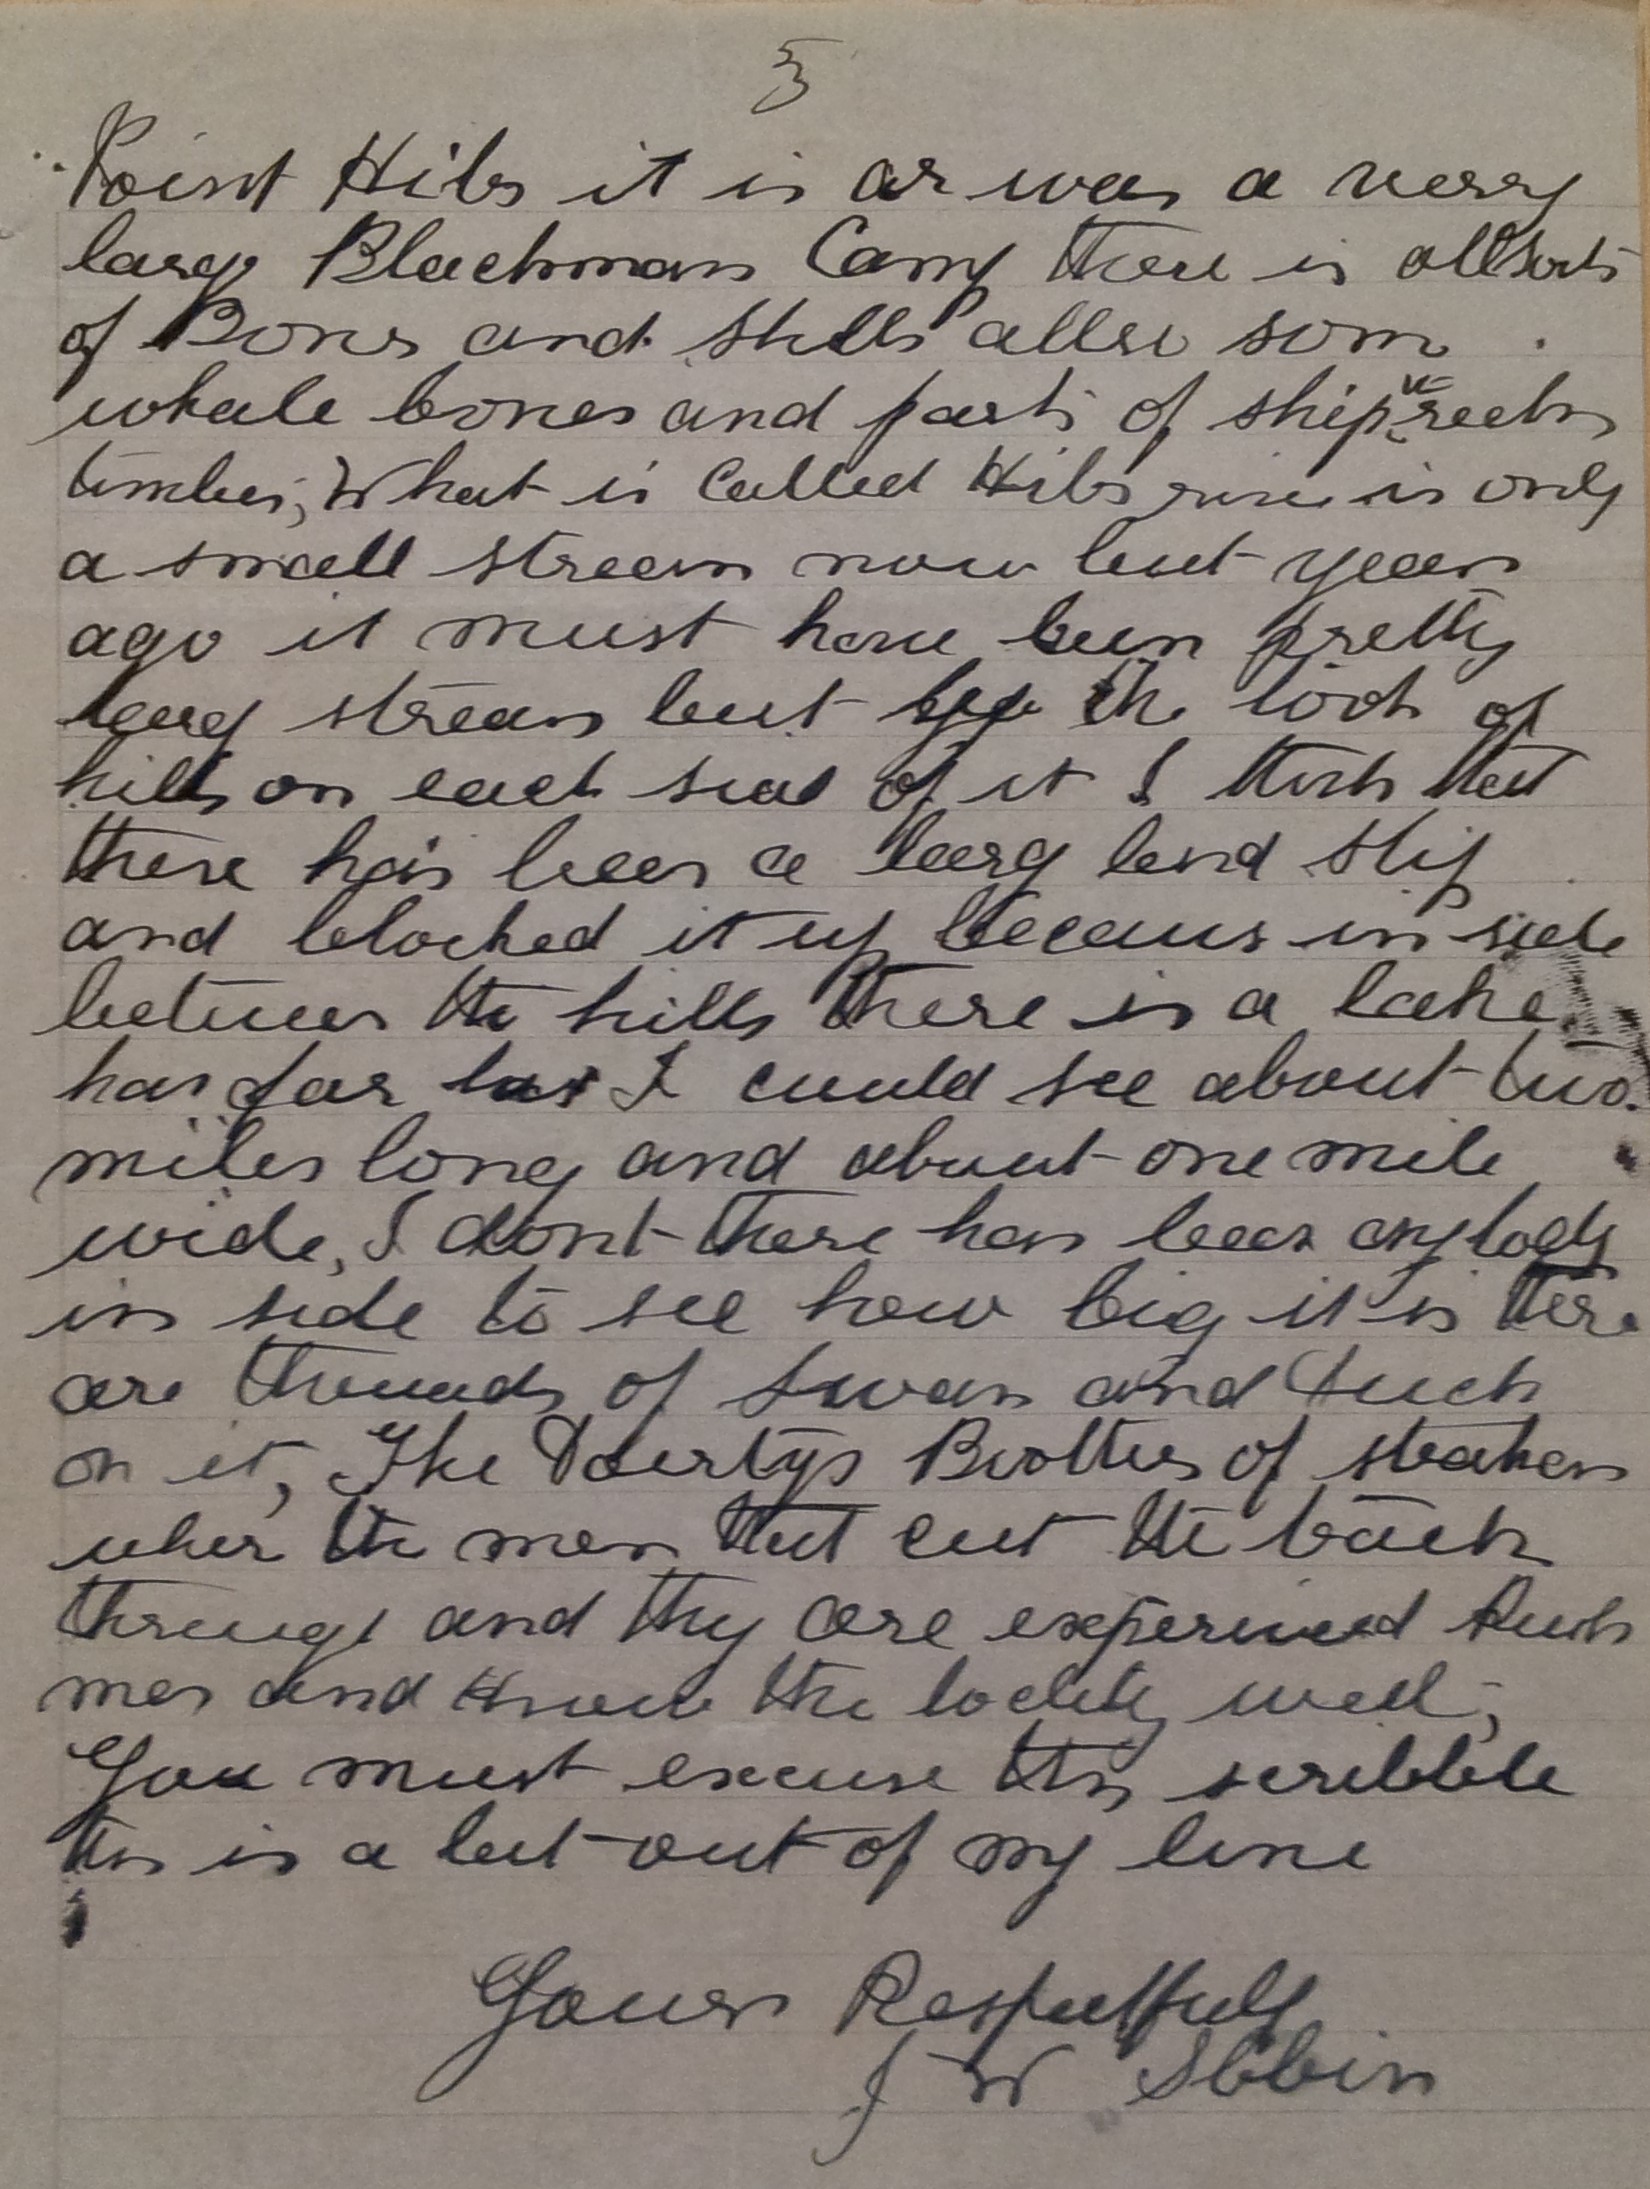 5
Point Hibs it is ar was a verry
larg Blackmans Camp there is all sorts
of Bones and Shells allso som
whale bones and parts of shipwrecks
timber, What is Called Hibs river is only
a small stream now but years
ago it must have been pretty
larg stream but bye the look of
hills on each side of it I think that
there has been a larg land slip
and blocked it up becaus in side
between the hills there is a lake
has far has I could see about two
miles long and about one mile
wide, I dont there has been anybody
in side to see how big it is there
are of Swan and Duck
on it, The Doertys Brothers of strahan
wher the men that cut the track
through and they are experienced Bush
men and know the well;
You must excuse this scribble
this is a bit out of my line
Yours Respectfuly
J W